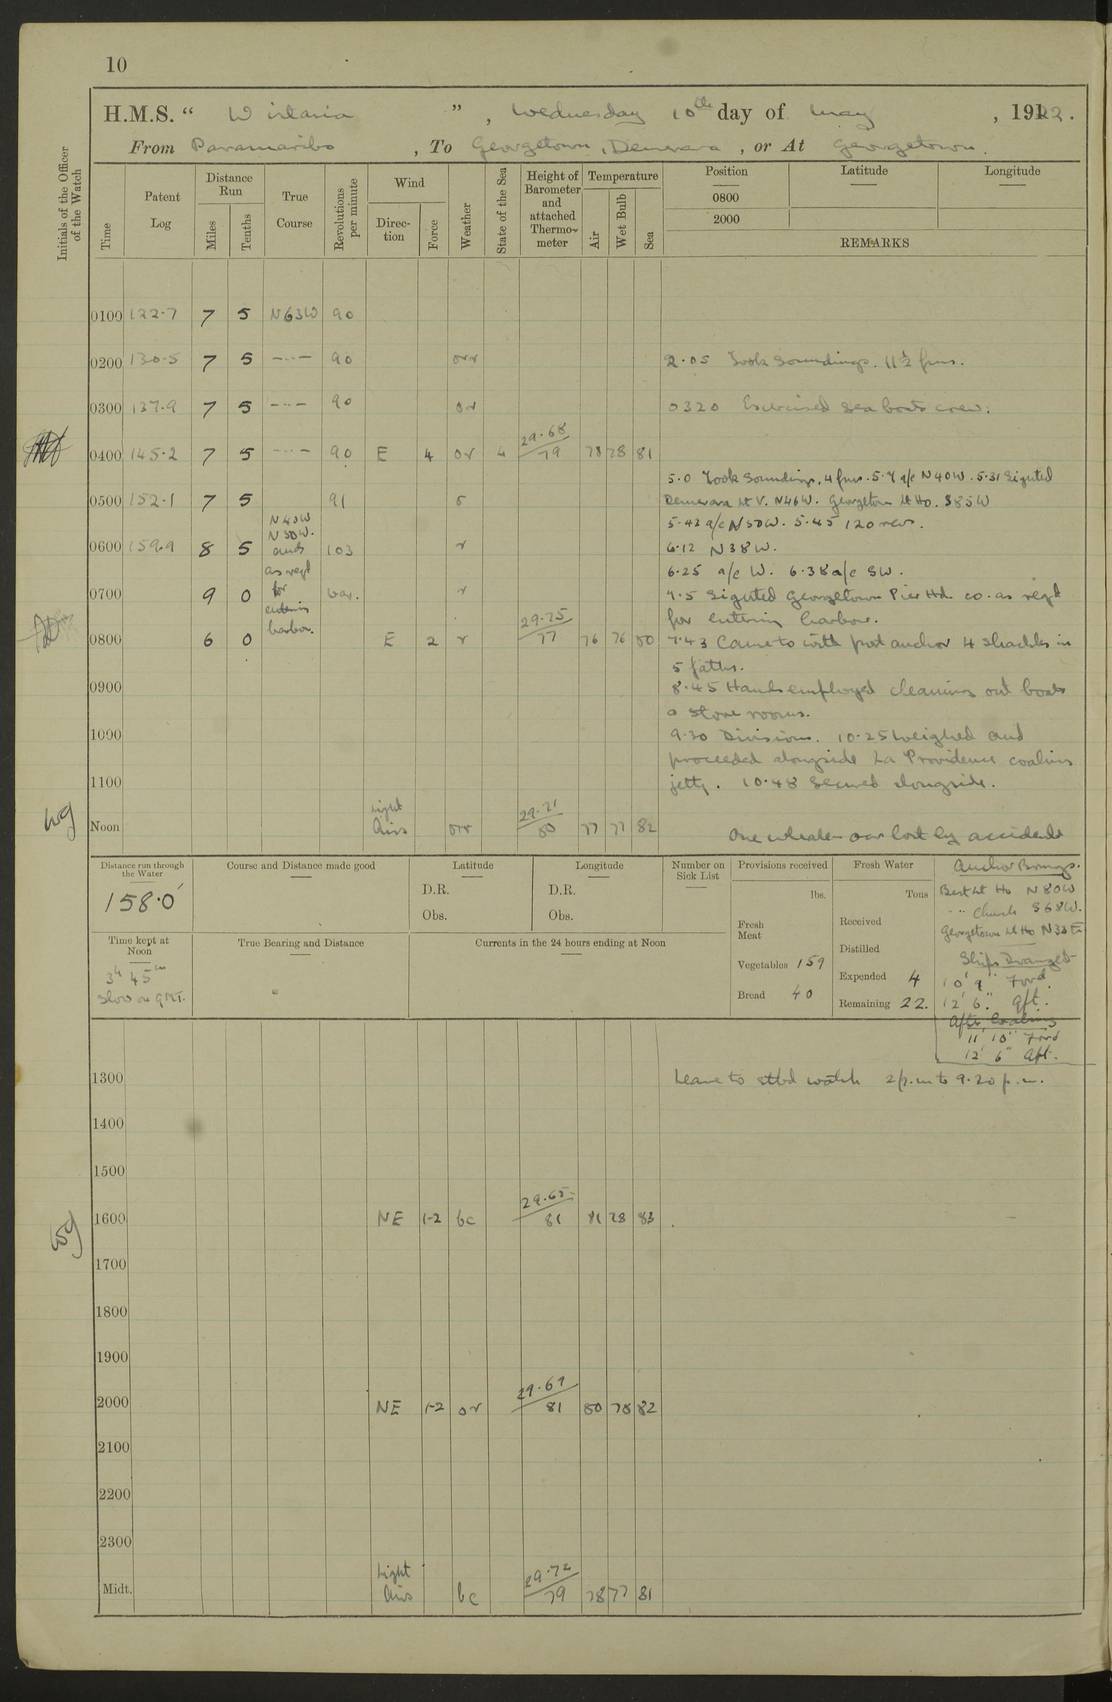 10
H.M.S. " Wistaria " , Wednesday 10th day of May , 1922.
From Paramaribo , To Georgetown, Demerara , or At Georgetown.
Initials of the Officer of the Watch
Time
Patent Log
Distance Run
Miles
Tenths
True Course
Revolutions per minute
Wind
Direc-tion
Force
Weather
State of the Sea
Height of Barometer and attached Thermo-meter
Temperature
Air
Wet Bulb
Sea
Position
0800
2000
Latitude
Longitude
REMARKS
0100 122.7 7 5 N63W 90
0200 130.5 7 5 —..— 90 orr 2.05 Took Soundings. 11½ fms.
0300 137.9 7 5 —..— 90 or 0320 Exercised sea boats crew.
0400 145.2 7 5 —..— 90 E 4 or 4 29.68/79 78 78 81
5.0 Took Soundings, 4 fms. 5.7 a/c N40W. 5.31 Sighted
0500 152.1 7 5 91 Demerara Lt V. N46W. Georgetown Lt Ho. S85W
N40W
5.42 a/c N50W. 5.45 120 revs.
N50W.
0600 159.9 8 5 and 103 r 6.12 N38W.
as reqd
6.25 a/c W. 6.38 a/c SW.
0700 9 0 for var. r 7.5 Sighted Georgetown Pier Hd. co. as reqd
entering
for entering harbour.
harbor.
0800 6 0 E 2 r 29.75/77 76 76 80 7.43 Came to with port anchor 4 shackles in
5 faths.
0900 8.45 Hands employed cleaning out boats
& store rooms.
1000 9.30 Divisions. 10.25 Weighed and
proceeded alongside La Providence coaling
1100 jetty. 10.48 Secured alongside.
Noon Light Airs orr 29.71/80 77 77 82 One whaler oar lost by accident
Distance run through the Water
158.0'
Course and Distance made good
Latitude
D.R.
Obs.
Longitude
D.R.
Obs.
Number on Sick List
Provisions received
lbs.
Fresh Meat
Vegetables 159
Bread 40
Fresh Water
Tons
Received
Distilled
Expended 4
Remaining 22.
Anchor Brngs.
N80W
-..- Church S68W.
Georgetown Lt Ho
Ships Draught
10' 9" Ford.
12' 6" aft.
After Coaling
11' 10" Ford
12' 6" Aft.
Time kept at Noon
3h 45m
Slow on GMT.
True Bearing and Distance
Currents in the 24 hours ending at Noon
1300 Leave to stbd watch 2 p.m to 9.20 p.m.
1400
1500
1600 NE 1-2 bc 29.65/81 81 78 83
1700
1800
1900
2000 NE 1-2 or 29.67/81 80 78 82
2100
2200
2300
Midt. Light Airs bc 29.72/79 78 77 81